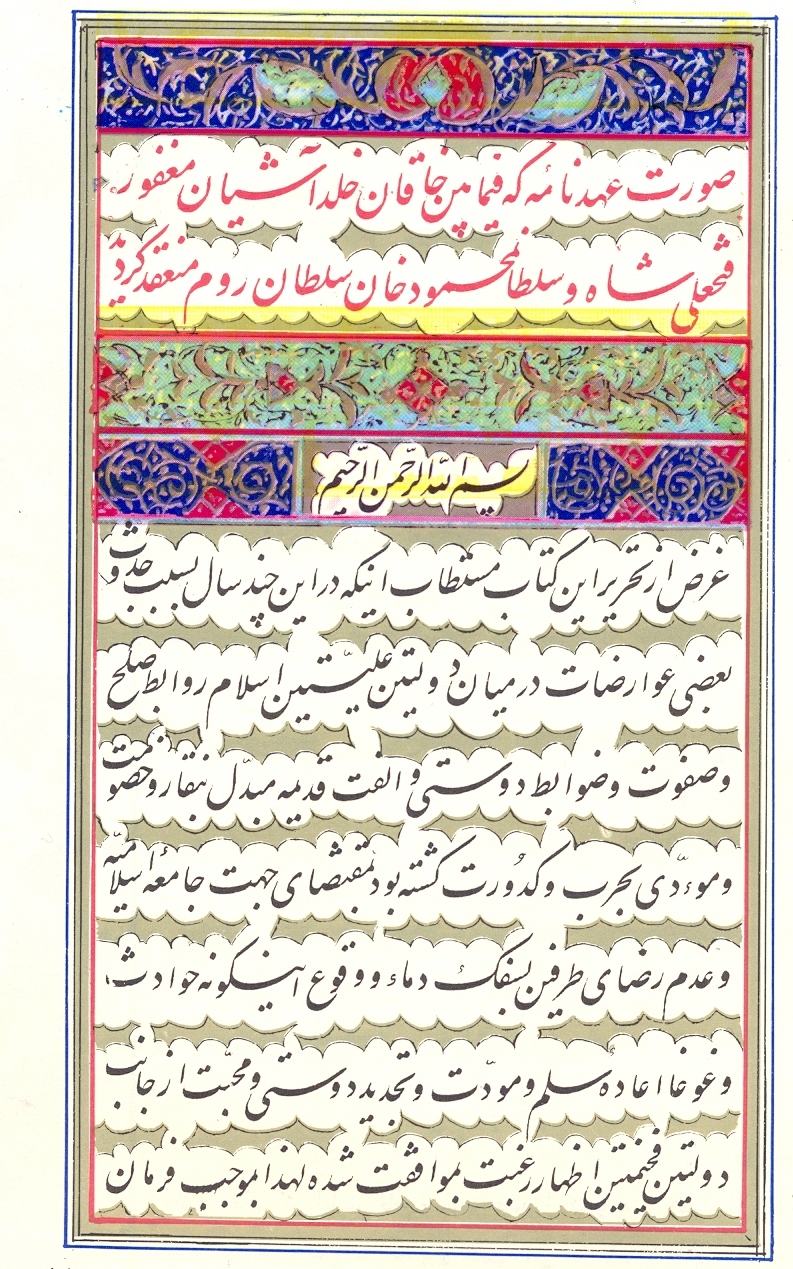 صورت عهدنامه که فیمابین خاقان خلد آشیان مغفور
فتحعلی شاه و سلطان محمود خان سلطان روم منعقد گردید
بسم الله الرّحمن الرّحیم
غرض از تحریر این کتاب مستطاب اینکه در این چند سال بسبب حدوث
بعضی عوارضات در میان دولتین علیّتین اسلام روابط صلح
و صفوت و ضوابط دوستی و الفت قدیمه مبدّل بنقار و خصومت
و موءدّی بحرب و کدُورت گشته بود بمقتضای جهت جامعهٔ اسلامیّه
و عدم رضای طرفین بسفک دماء و وقوع اینگونه حوادث
و غوغا اعاده سلم و مودّت و تجدید دوستی و محبّت از جانب
دولتین فخیمتین اظهار رغبت بموافقت شده لهذا بموجب فرمان